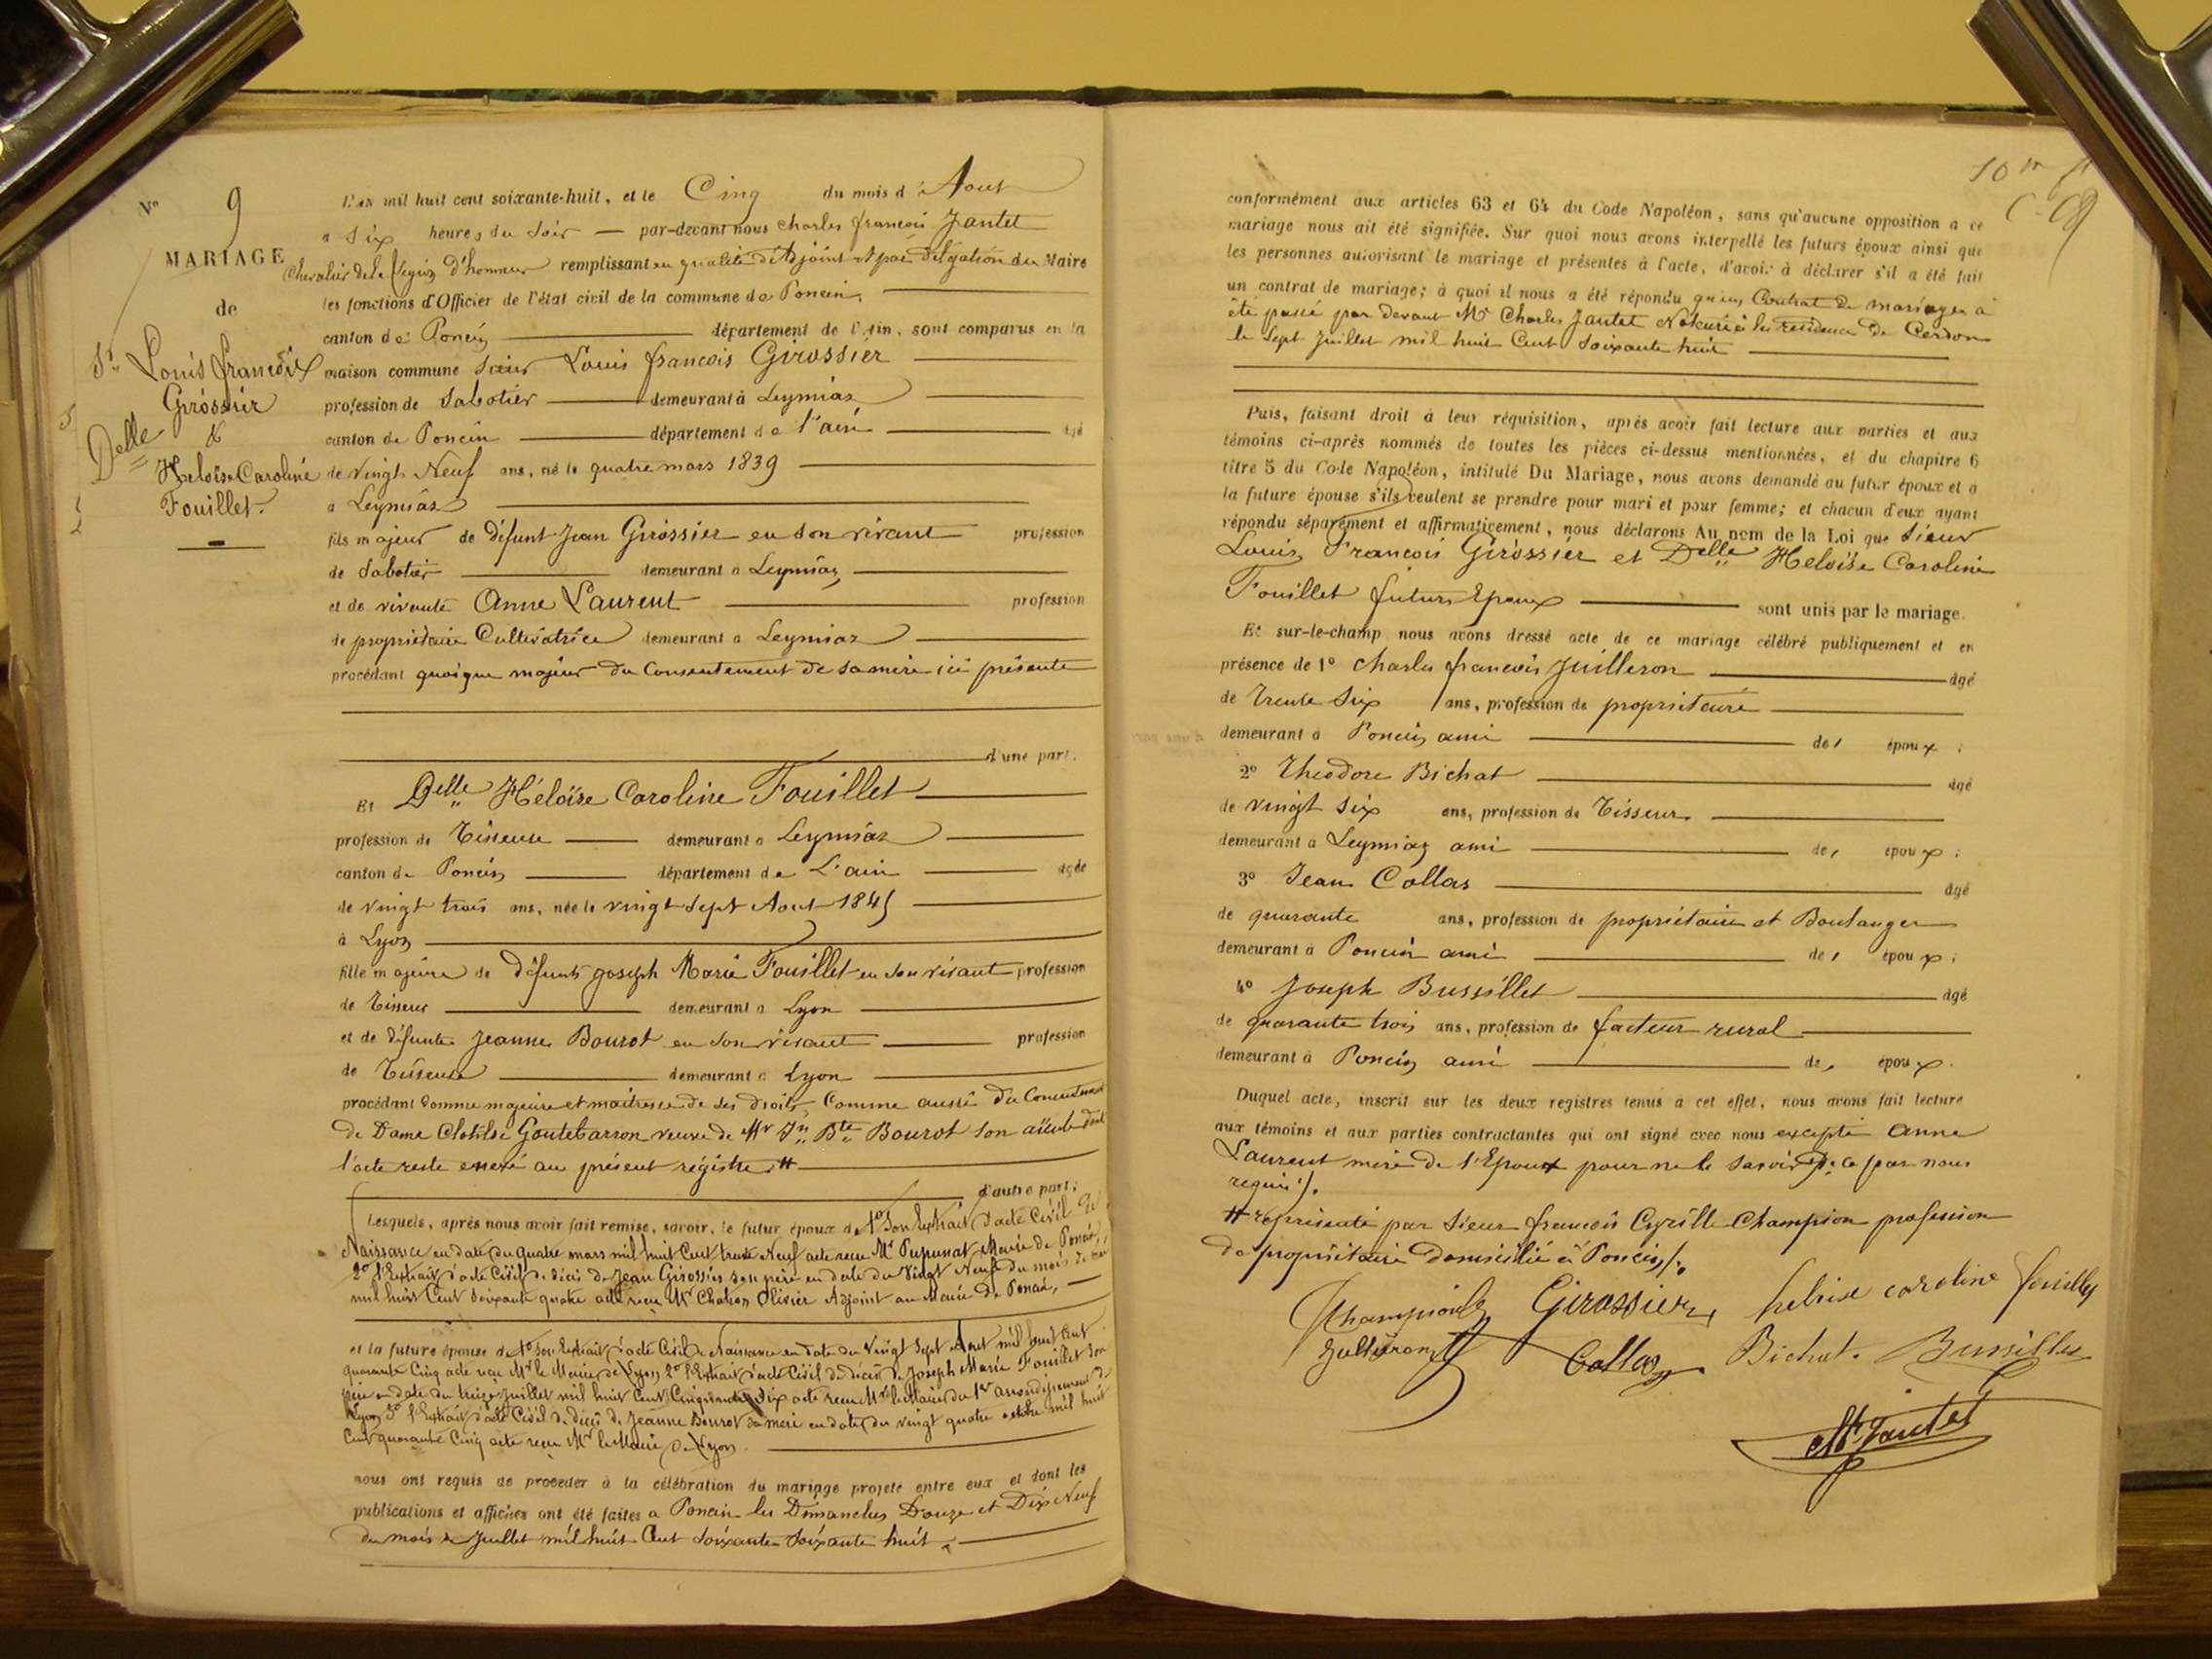 N° 9
MARIAGE
de
Sr Louis françois
Girossier
&
Delle Heloïse Caroline
Fouillet.
L'an mil huit cent soixante-huit, et le Cinq du mois d'Aout
a Six heures du Soir — par-devant nous Charles françois Jantet
Chevalier de la légion d'honneur remplissant en qualité d'Adjoint et par délégation du Maire
les fonctions d'Officier de l'état civil de la commune de Poncin,
canton de Poncin département de l'Ain, sont comparus en la
maison commune Sieur Louis françois Girossier
profession de Sabotier demeurant à Leymiaz
canton de Poncin département de l'ain âgé
de vingt Neuf ans, né le quatre mars 1839
a Leymiaz
fils majeur de défunt Jean Girossier en son vivant profession
de Sabotier demeurant a Leymiaz
et de vivante Anne Laurent profession
de propriétaire Cultivatrice demeurant a Leymiaz
procédant quoique majeur du Consentement de sa mère ici présente
d'une part.
Et Delle Héloïse Caroline Fouillet
profession de Tisseuse demeurant a Leymiaz
canton de Poncin département de L'ain agée
de vingt trois ans, née le vingt Sept Aout 1845
à Lyon
fille majeure de défunt Joseph Marie Fouillet en son vivant profession
de Tisseur demeurant a Lyon
et de défunte Jeanne Bourot en son vivant profession
de Tisseuse demeurant a Lyon
procédant Comme majeure et maitresse de ses droits, Comme aussi du Consentement
de Dame Clotilde Goutebarron veuve de Mr Jn Bte Bourot son aïeule dont
l'acte reste annexé au présent régistre #
d'autre part;
Lesquels, après nous avoir fait remise, savoir, le futur époux de 1° Son Extrait d'acte Civil de
Naissance en date du quatre mars mil huit Cent trente Neuf acte reçu Mr Maire de Poncin,
2° l'Extrait d'acte Civil de décès de Jean Girossier son père en date du Vingt Neuf du mois de mars
mil huit Cent Soixante quatre acte reçu Mr Chaton Olivier Adjoint au Maire de Poncin,
et la future épouse de 1° son Extrait d'acte Civil de Naissance en date du Vingt Sept Aout mil huit Cent
quarante Cinq acte reçu Mr le Maire de Lyon 2° l'Extrait d'acte Civil de décès de Joseph Marie Fouillet Son
père en date du treize Juillet mil huit Cent Cinquante Six acte reçu Mr le Maire du 1er arrondissement de
Lyon 3° l'Extrait d'acte Civil de décès de Jeanne Bourot sa mère en date du vingt quatre octobre mil huit
Cent quarante Cinq acte reçu Mr le Maire de Lyon.
nous ont requis de proceder à la célébration du mariage projeté entre eux et dont les
publications et affiches ont été faites a Poncin les Dimanches Douze et Dix Neuf
du mois de Juillet mil huit Cent Soixante Soixante huit.
conformément aux articles 63 et 64 du Code Napoléon, sans qu'aucune opposition a ce
mariage nous ait été signifiée. Sur quoi nous avons interpellé les futurs époux ainsi que
les personnes autorisant le mariage et présentes à l'acte, d'avoir à déclarer s'il a été fait
un contrat de mariage; à quoi il nous a été répondu qu'un Contrat de mariage a
été passé par devant Mr Charles Jantet Notaire à la résidence de Cerdon
le Sept Juillet mil huit Cent Soixante huit
Puis, faisant droit à leur réquisition, après avoir fait lecture aux parties et aux
témoins ci-après nommés de toutes les pièces ci-dessus mentionnées, et du chapitre 6
titre 5 du Code Napoléon, intitulé Du Mariage, nous avons demandé au futur époux et a
la future épouse s'ils veulent se prendre pour mari et pour femme; et chacun d'eux ayant
répondu séparément et affirmativement, nous déclarons Au nom de la Loi que Sieur
Louis François Girossier et Delle Heloïse Caroline
Fouillet futurs Epoux sont unis par le mariage.
Et sur-le-champ nous avons dressé acte de ce mariage célébré publiquement et en
présence de 1° Charles françois Juilleron âgé
de trente Six ans, profession de propriétaire
demeurant à Poncin ami des époux;
2° Théodore Bichat âgé
de vingt Six ans, profession de Tisseur
demeurant a Leymiaz ami des époux;
3° Jean Collas âgé
de quarante ans, profession de propriétaire et Boulanger
demeurant à Poncin ami des époux;
4° Joseph Bussillet âgé
de quarante trois ans, profession de facteur rural
demeurant à Poncin ami des époux.
Duquel acte, inscrit sur les deux registres tenus à cet effet, nous avons fait lecture
aux témoins et aux parties contractantes qui ont signé avec nous excepté Anne
Laurent mère de l'Epoux pour ne le savoir de ce par nous
requis/.
# représenté par Sieur françois Cyrille Champion profession
de propriétaire domicilié à Poncin/.
Champion Girossier heloise caroline fouillet
Juilleron Collas Bichat. Bussillet
Jantet